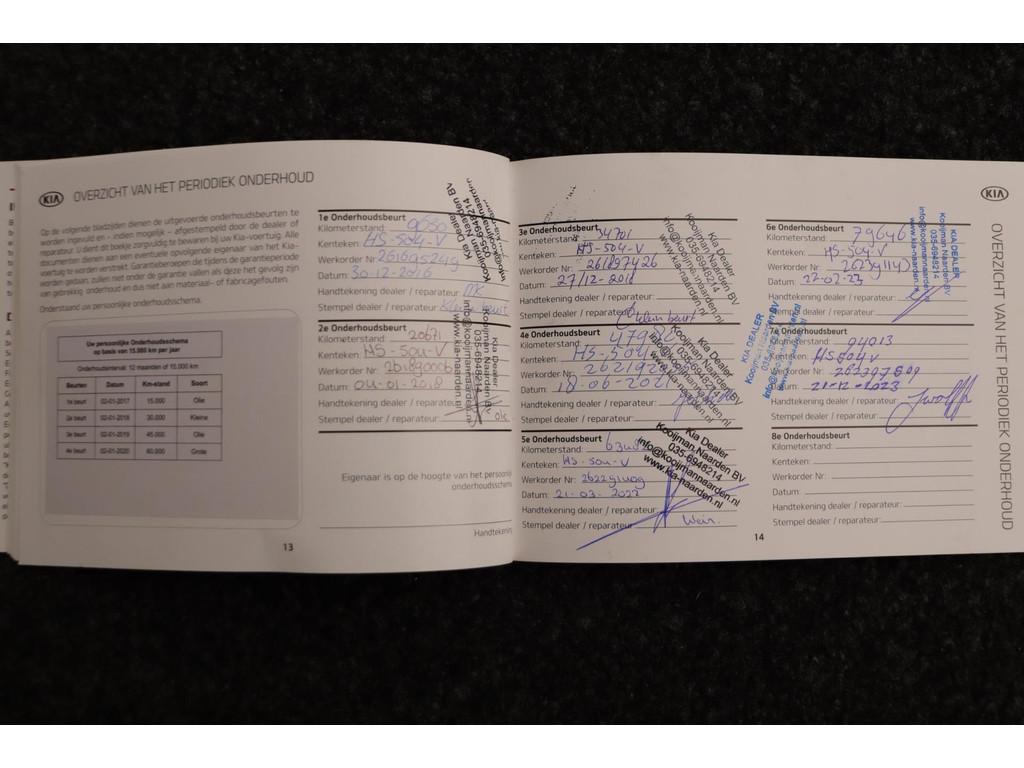 KIA OVERZICHT VAN HET PERIODIEK ONDERHOUD
Op de volgende bladzijden dienen de uitgevoerde onderhoudsbeurten te
worden ingevuld en - indien mogelijk - afgestempeld door de dealer of
reparateur. U dient dit boekje zorgvuldig te bewaren bij uw Kia-voertuig. Alle
documenten dienen aan een eventuele opvolgende eigenaar van het Kia-
voertuig te worden verstrekt. Garantieberoepen die tijdens de garantieperiode
worden gedaan, zullen niet onder de garantie vallen als deze het gevolg zijn
van gebrekkig onderhoud en dus niet aan materiaal- of fabricagefouten.
Onderstaand uw persoonlijke onderhoudsschema.
Uw persoonlijke Onderhoudsschema
op basis van 15.000 km per jaar
Onderhoudsinterval: 12 maanden of 15.000 km
Beurten Datum Km-stand Soort
1e beurt 02-01-2017 15.000 Olie
2e beurt 02-01-2018 30.000 Kleine
3e beurt 02-01-2019 45.000 Olie
4e beurt 02-01-2020 60.000 Grote
13
1e Onderhoudsbeurt
Kilometerstand:
Kenteken: HS-504-V
Werkorder Nr: 261695249
Datum: 30-12-2016
Handtekening dealer / reparateur:
Stempel dealer / reparateur:
Kia Dealer
Kooijman Naarden BV
035-6948214
2e Onderhoudsbeurt
Kilometerstand: 20671
Kenteken: HS-504-V
Werkorder Nr: 261890006
Datum: 04-01-2018
Handtekening dealer / reparateur:
Stempel dealer / reparateur: olie
Kia Dealer
Kooijman Naarden BV
035-6948214
info@kooijmannaarden.nl
www.kia-naarden.nl
Eigenaar is op de hoogte van het persoonlijk
onderhoudsschema
Handtekening
3e Onderhoudsbeurt
Kilometerstand: 34701
Kenteken: HS-504-V
Werkorder Nr: 261897426
Datum: 27/12-2018
Handtekening dealer / reparateur:
Stempel dealer / reparateur: klein beurt
Kia Dealer
Kooijman Naarden BV
035-6948214
info@kooijmannaarden.nl
www.kia-naarden.nl
4e Onderhoudsbeurt
Kilometerstand:
Kenteken: HS-504
Werkorder Nr:
Datum: 18-06-2021
Handtekening dealer / reparateur:
Stempel dealer / reparateur:
Kia Dealer
Kooijman Naarden BV
035-6948214
info@kooijmannaarden.nl
www.kia-naarden.nl
5e Onderhoudsbeurt
Kilometerstand:
Kenteken: HS-504-V
Werkorder Nr:
Datum: 21-03-2022
Handtekening dealer / reparateur:
Stempel dealer / reparateur:
Kia Dealer
Kooijman Naarden BV
035-6948214
info@kooijmannaarden.nl
www.kia-naarden.nl
14
6e Onderhoudsbeurt
Kilometerstand: 79646
Kenteken: HS-504-V
Werkorder Nr:
Datum: 22-02-23
Handtekening dealer / reparateur:
Stempel dealer / reparateur:
KIA DEALER
Kooijman Naarden BV
035-6948214
info@kooijmannaarden.nl
www.kia-naarden.nl
7e Onderhoudsbeurt
Kilometerstand: 94013
Kenteken: HS504V
Werkorder Nr:
Datum: 21-12-2023
Handtekening dealer / reparateur:
Stempel dealer / reparateur:
KIA DEALER
8e Onderhoudsbeurt
Kilometerstand:
Kenteken:
Werkorder Nr:
Datum:
Handtekening dealer / reparateur:
Stempel dealer / reparateur:
KIA
OVERZICHT VAN HET PERIODIEK ONDERHOUD